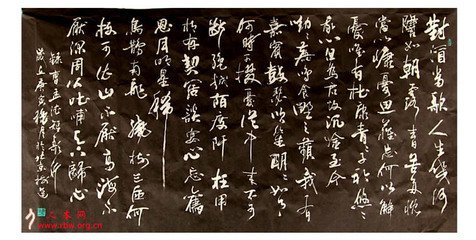 對酒當歌人生幾何
譬如朝露去日苦多慨
當以慷憂思難忘何以解
憂唯有杜康青青子衿悠悠
我心但為君故沉吟至今
呦呦鹿鳴食野之蘋我有
嘉賓鼓瑟吹笙明明如月
何時可掇憂從中來不可
斷絕越陌度阡枉用
相存契闊談讌心念舊
恩月明星稀
烏鵲南飛繞樹三匝何
枝可依山不厭高海不
厭深周公吐哺天下歸心
錄曹孟德短歌行
庚寅
www.rbw.org.cn